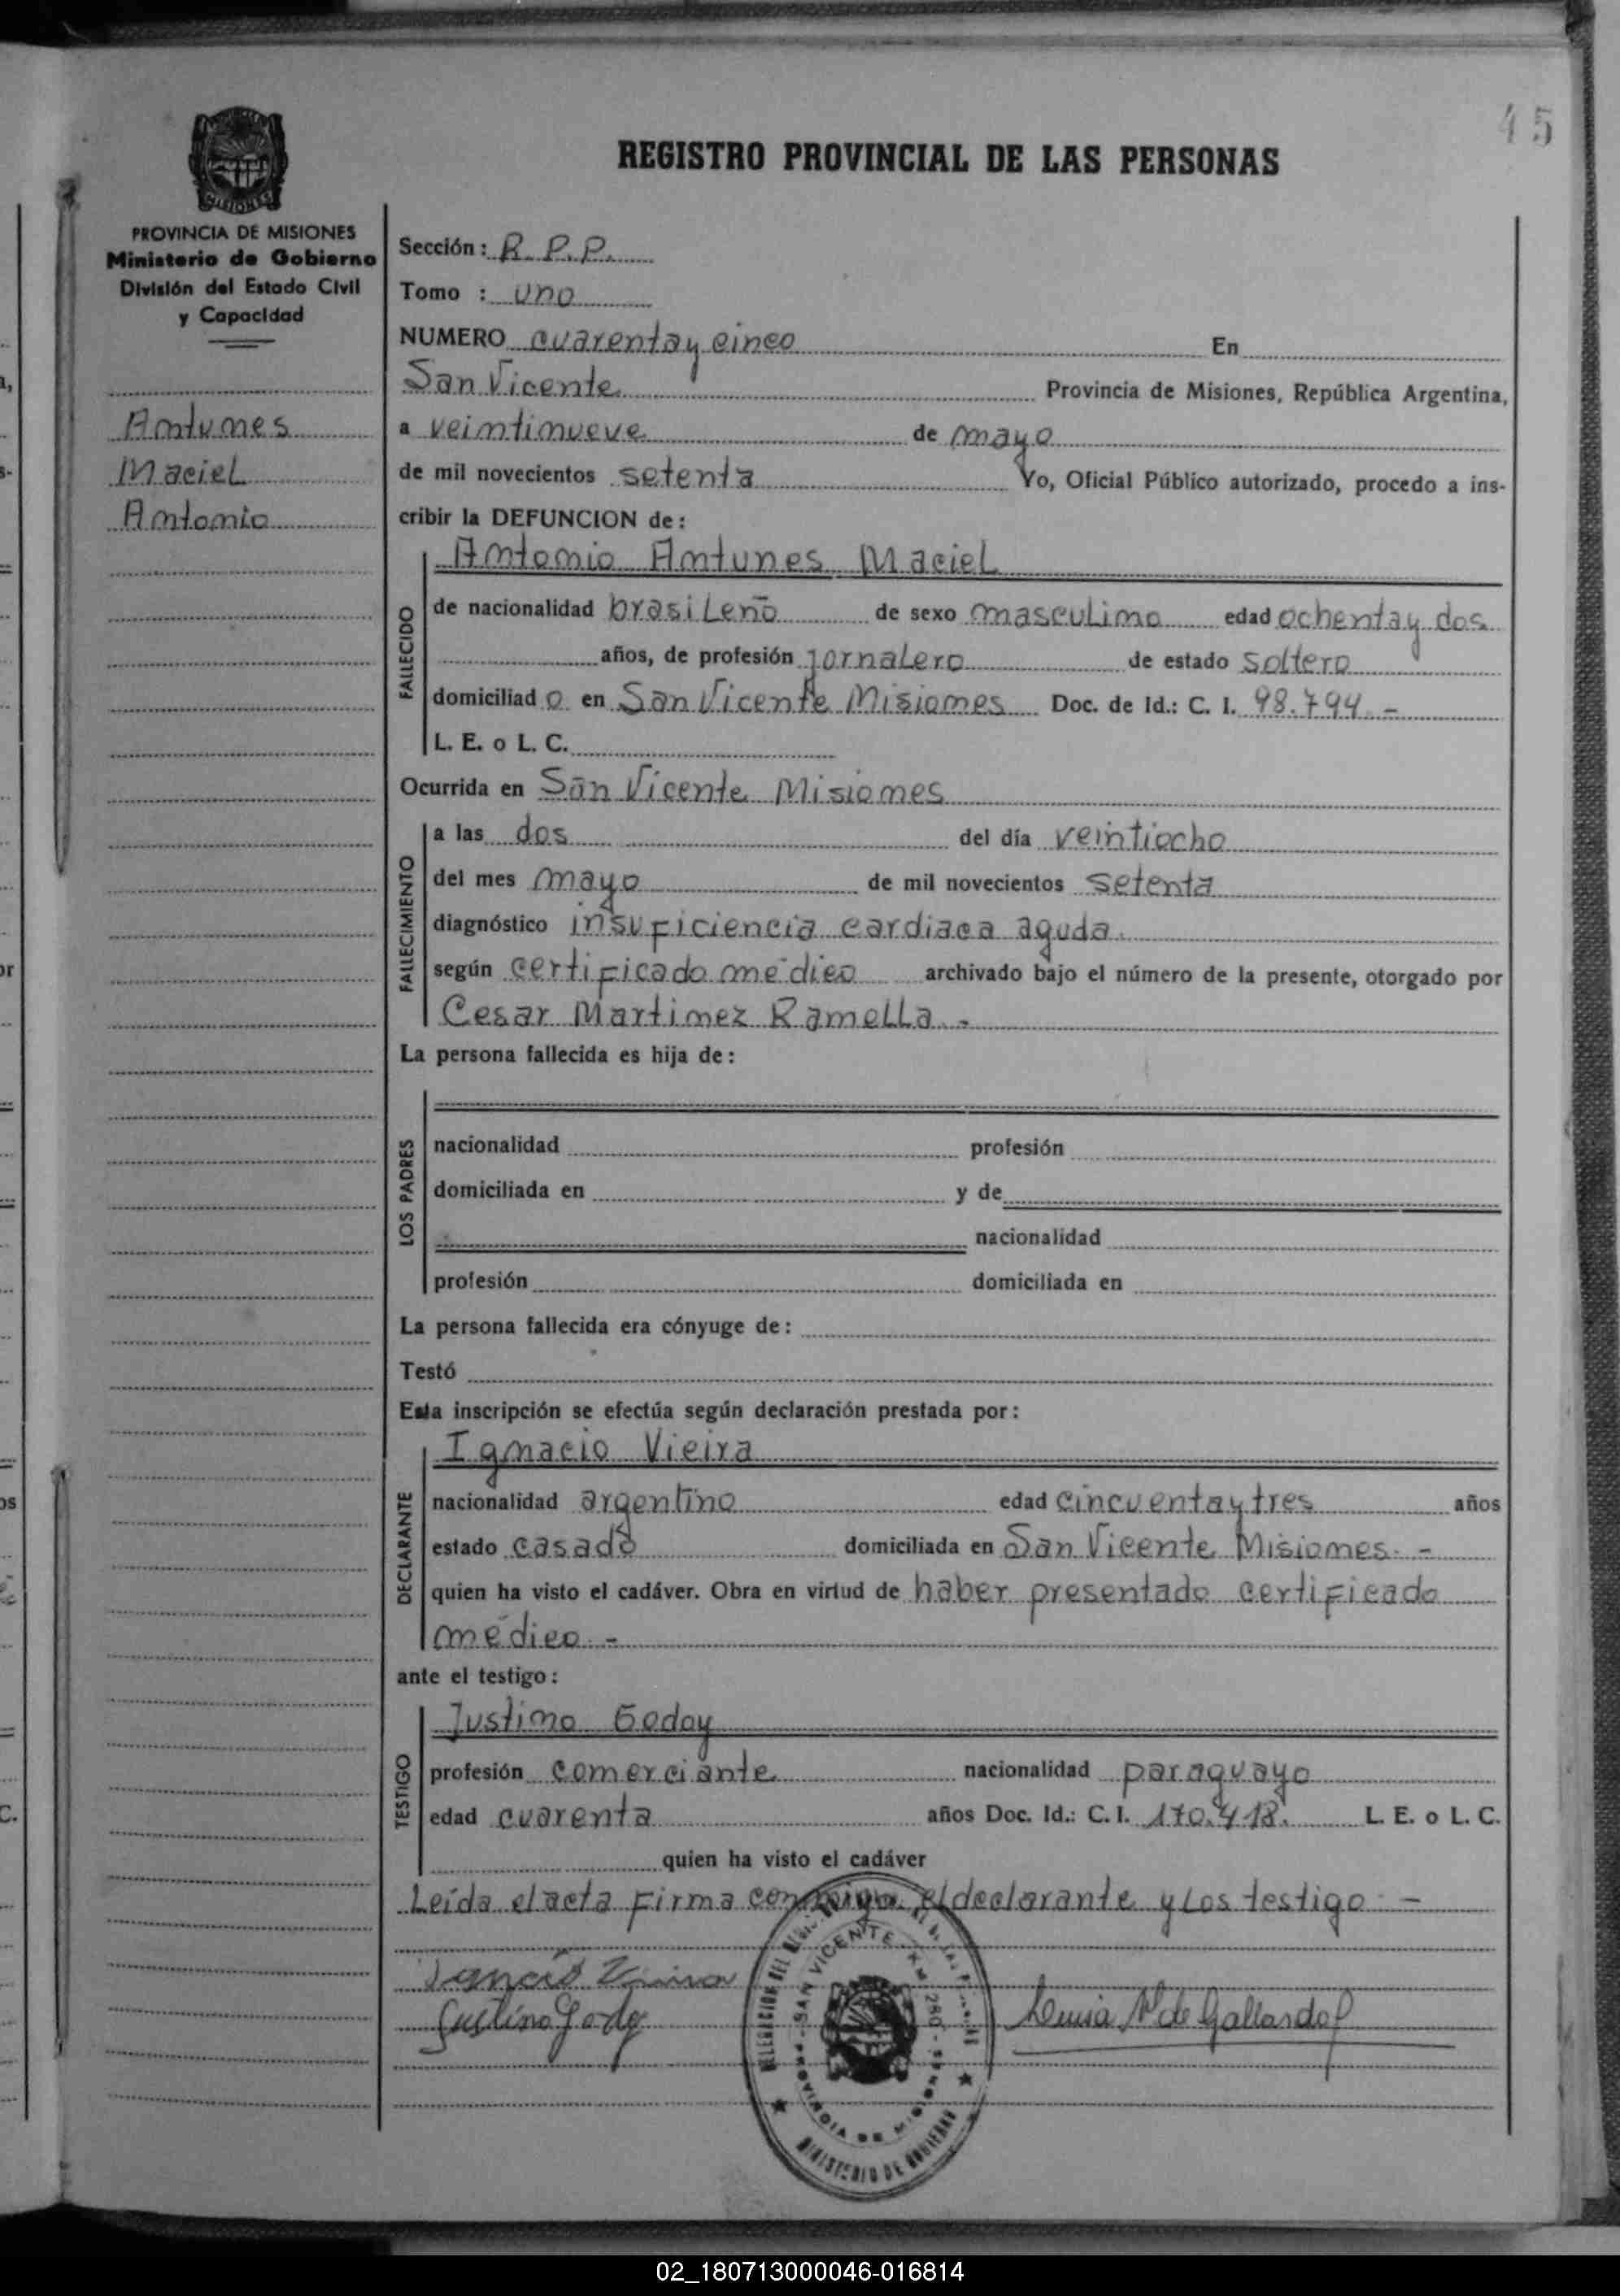 45
REGISTRO PROVINCIAL DE LAS PERSONAS
MISIONES
PROVINCIA DE MISIONES
Ministerio de Gobierno
División del Estado Civil
y Capacidad
Antunes
Maciel
Antonio
Sección: R.P.P.
Tomo : uno
NUMERO cuarenta y cinco En
San Vicente Provincia de Misiones, República Argentina,
a veintinueve de mayo
de mil novecientos setenta Yo, Oficial Público autorizado, procedo a ins-
cribir la DEFUNCION de:
FALLECIDO
Antonio Antunes Maciel
de nacionalidad brasileño de sexo masculino edad ochenta y dos
años, de profesión jornalero de estado soltero
domiciliado en San Vicente Misiones Doc. de Id.: C. I. 98.794 -
L. E. o L. C.
Ocurrida en San Vicente Misiones
FALLECIMIENTO
a las dos del día veintiocho
del mes mayo de mil novecientos setenta
diagnóstico insuficiencia cardiaca aguda.
según certificado médico archivado bajo el número de la presente, otorgado por
Cesar Martinez Ramella. -
La persona fallecida es hija de:
LOS PADRES
nacionalidad profesión
domiciliada en y de
nacionalidad
profesión domiciliada en
La persona fallecida era cónyuge de:
Testó
Esta inscripción se efectúa según declaración prestada por:
DECLARANTE
Ignacio Vieira
nacionalidad argentino edad cincuenta y tres años
estado casado domiciliada en San Vicente Misiones. -
quien ha visto el cadáver. Obra en virtud de haber presentado certificado
médico. -
ante el testigo:
TESTIGO
Justino Godoy
profesión comerciante nacionalidad paraguayo
edad cuarenta años Doc. Id.: C. I. 170.418. L. E. o L. C.
quien ha visto el cadáver
Leída el acta firma conmigo el declarante y los testigo. -
Justino Godoy
de Gallardo
SAN VICENTE - KM 250 -
PROVINCIA DE MISIONES
MINISTERIO DE GOBIERNO
02_180713000046-016814